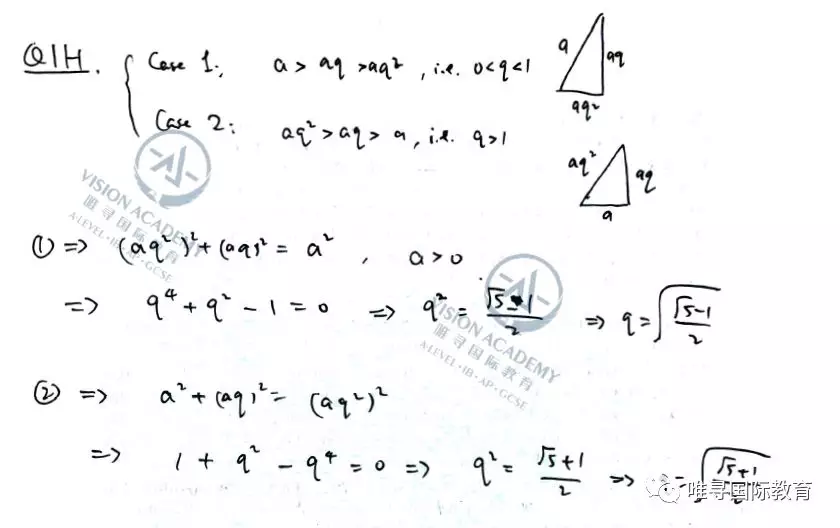 Q1H.
Case 1: a > aq > aq², i.e. 0<q<1
a
aq
aq²
Case 2: aq² > aq > a, i.e. q>1
aq²
aq
a
VISION ACADEMY
唯寻国际教育
A-LEVEL·IB·AP·GCSE
① => (aq²)²+(aq)² = a² , a>0
=> q⁴+q²-1=0 => q² = (√5-1)/2 => q=√((√5-1)/2)
VISION ACADEMY
唯寻国际教育
A-LEVEL·IB·AP·GCSE
② => a²+(aq)² = (aq²)²
=> 1+q²-q⁴=0 => q² = (√5+1)/2 => = √((√5+1)/2)
唯寻国际教育